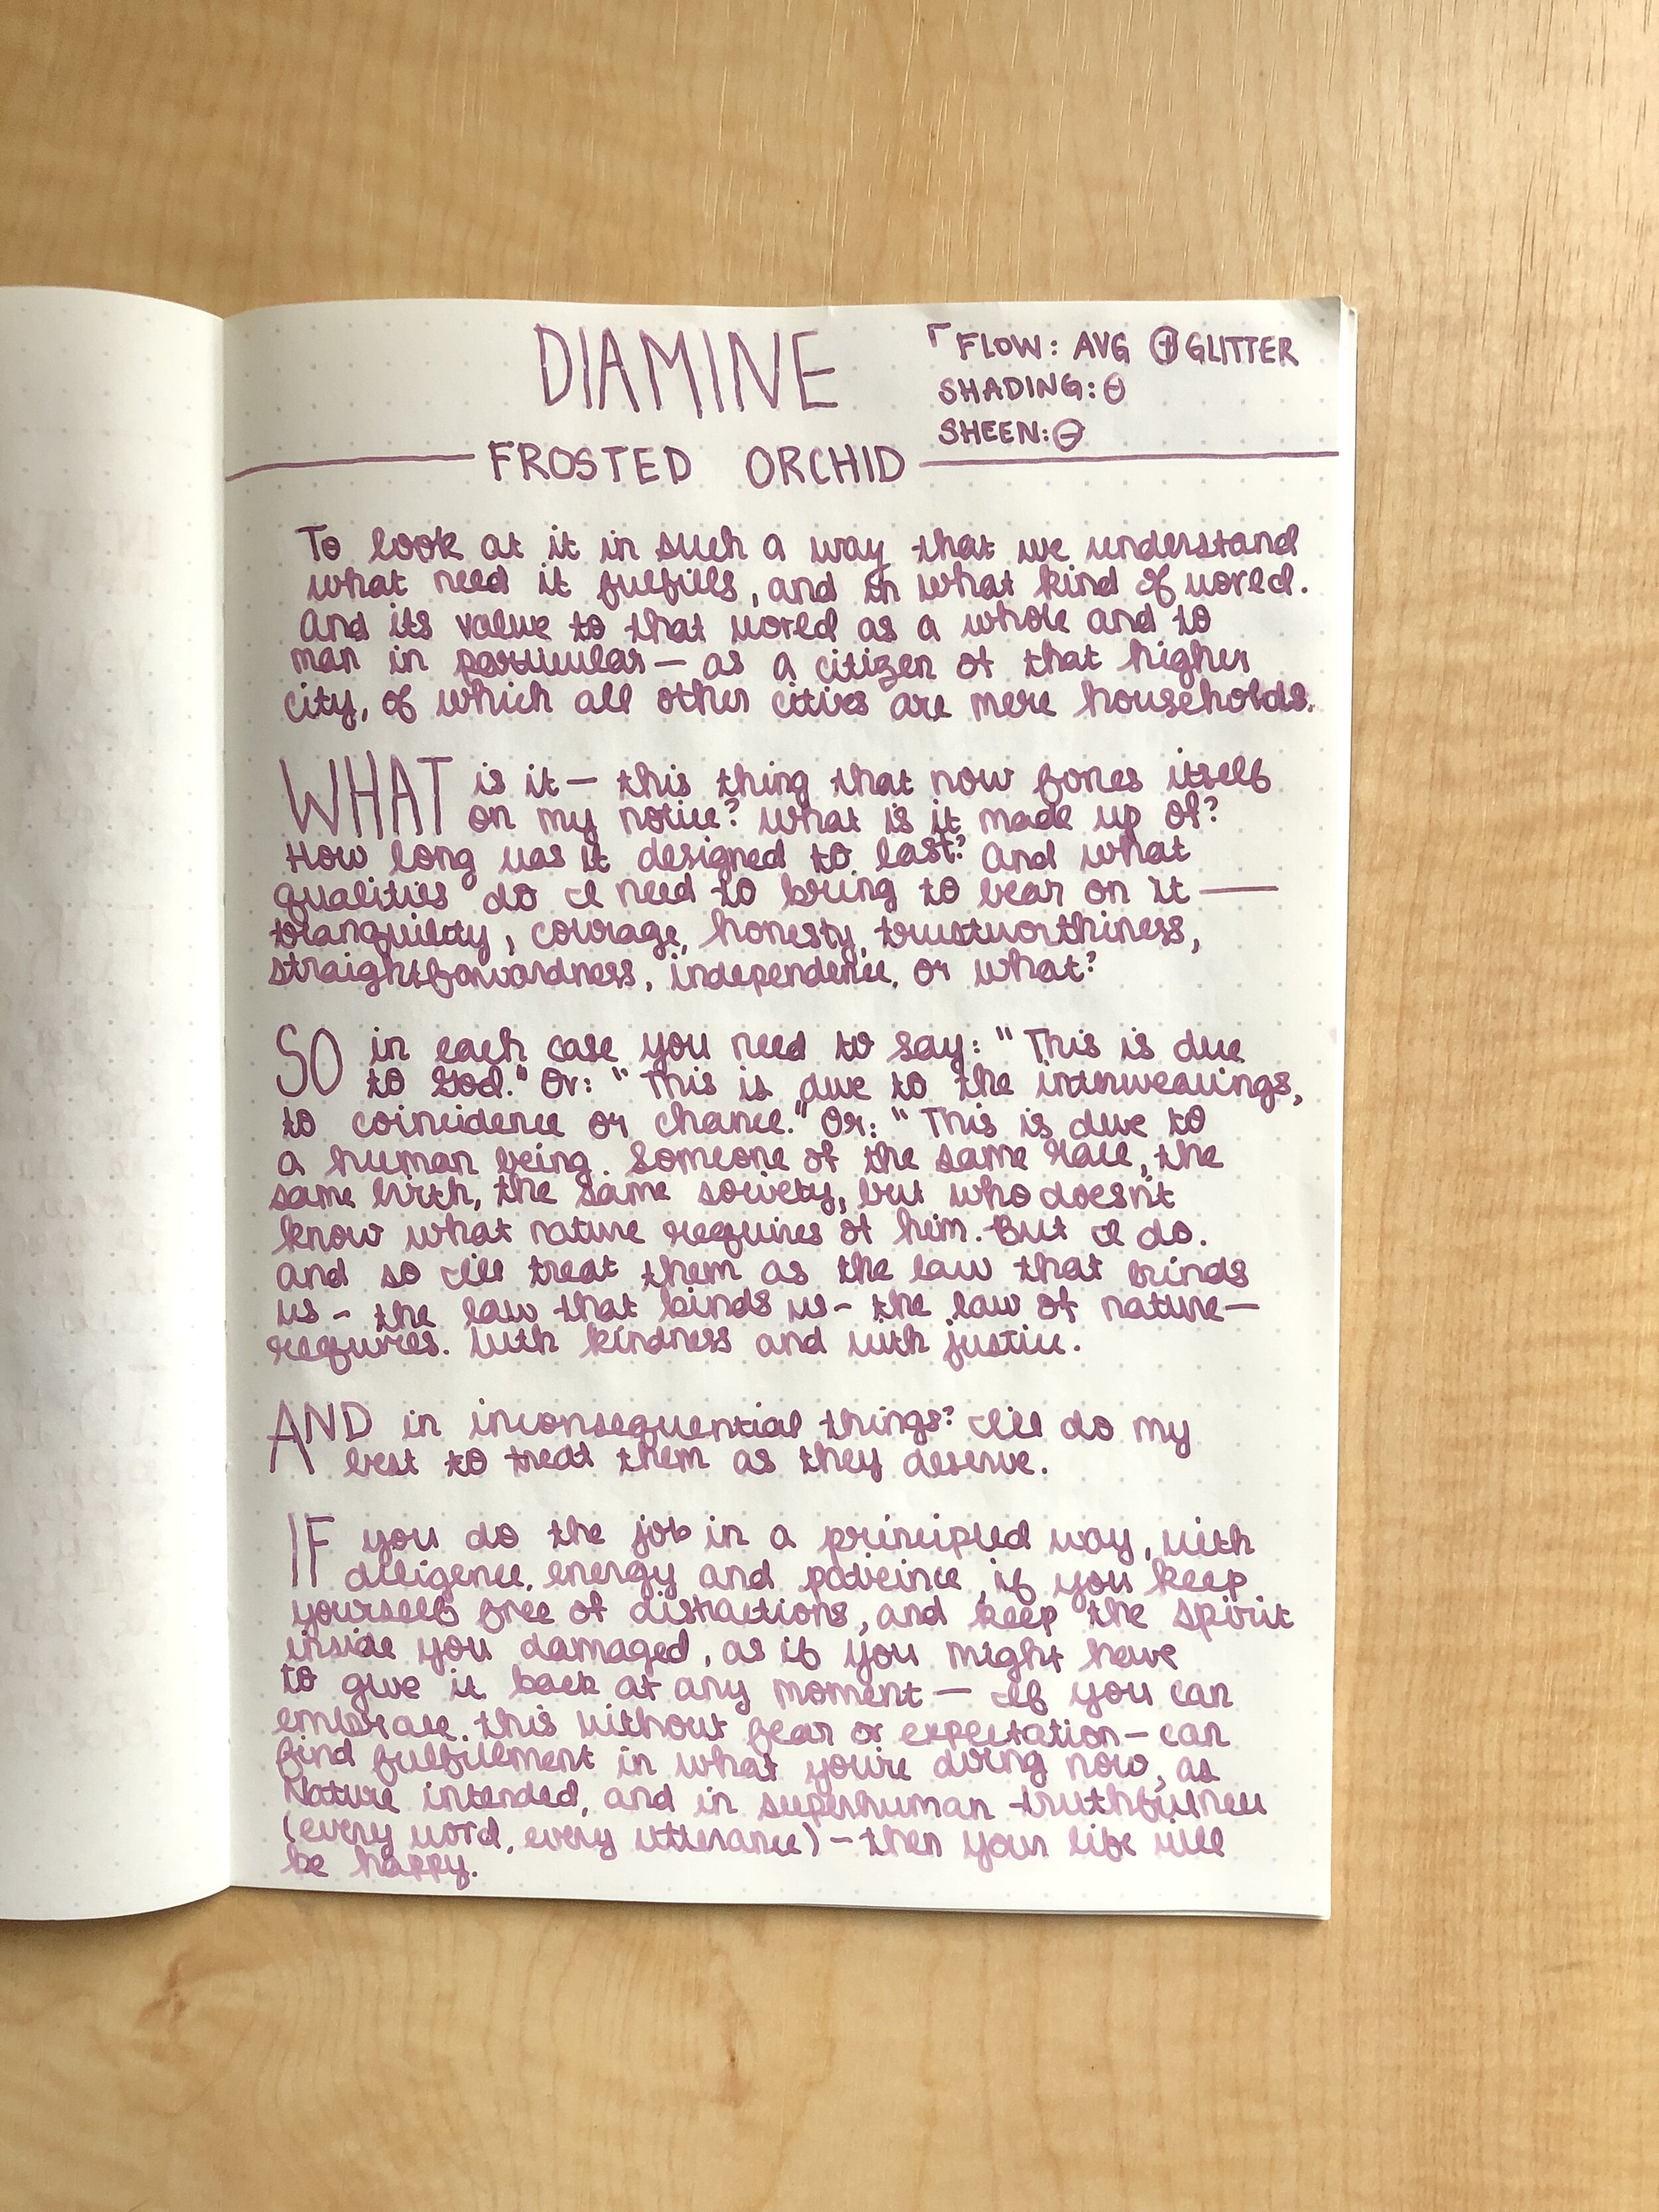 DIAMINE
FROSTED ORCHID
FLOW: AVG ⊕ GLITTER
SHADING: ⊖
SHEEN: ⊖
To look at it in such a way that we understand
what need it fulfills, and in what kind of world.
And its value to that world as a whole and to
man in particular — as a citizen of that higher
city, of which all other cities are mere households.
WHAT is it — this thing that now forces itself
on my notice? What is it made up of?
How long was it designed to last? And what
qualities do I need to bring to bear on it —
tranquility, courage, honesty, trustworthiness,
straightforwardness, independence, or what?
SO in each case you need to say: "This is due
to God." Or: "This is due to the interweavings,
to coincidence or chance." Or: "This is due to
a human being. Someone of the same race, the
same birth, the same society, but who doesn't
know what nature requires of him. But I do.
And so I'll treat them as the law that binds
us - the law that binds us - the law of nature —
requires. With kindness and with justice.
AND in inconsequential things? I'll do my
best to treat them as they deserve.
IF you do the job in a principled way, with
diligence, energy and patience, if you keep
yourself free of distractions, and keep the spirit
inside you damaged, as if you might have
to give it back at any moment — If you can
embrace this without fear or expectation — can
find fulfillment in what you're doing now, as
Nature intended, and in superhuman truthfulness
(every word, every utterance) - then your life will
be happy.